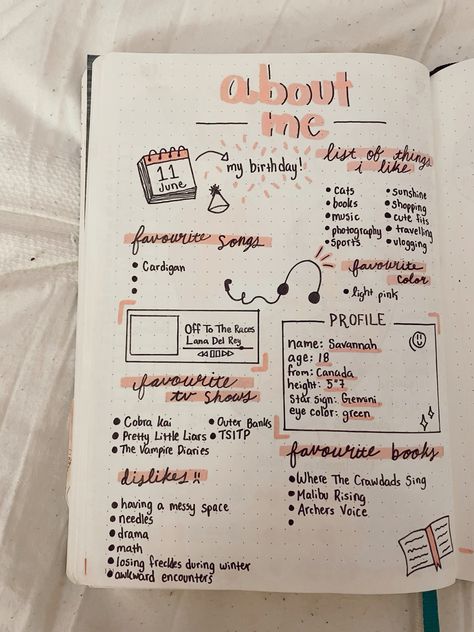 about
me
11
June
my birthday!
list of things
i like
• cats
• books
• music
• photography
• sports
• sunshine
• shopping
• cute fits
• travelling
• vlogging
favourite songs
• Cardigan
•
•
favourite
color
• light pink
Off To The Races
Lana Del Rey
PROFILE
name: Savannah
age: 18
from: Canada
height: 5"7
star sign: Gemini
eye color: green
favourite
tv shows
• Cobra Kai
• Pretty Little Liars
• The Vampire Diaries
• Outer Banks
• TSITP
dislikes!!
• having a messy space
• needles
• drama
• math
• losing freckles during winter
• awkward encounters
favourite books
• Where The Crawdads Sing
• Malibu Rising
• Archers Voice
•